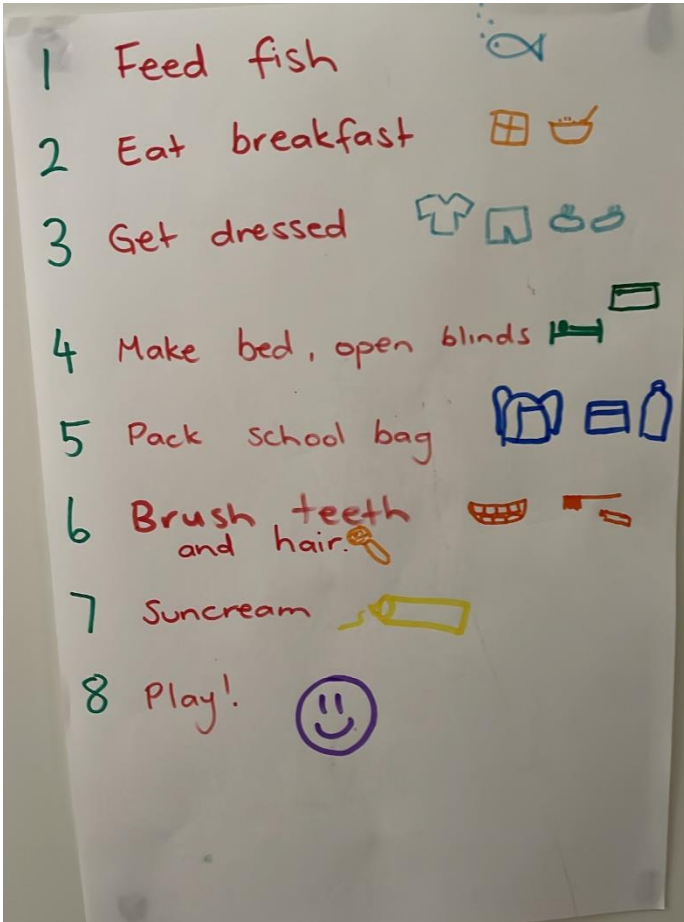 1 Feed fish
2 Eat breakfast
3 Get dressed
4 Make bed, open blinds
5 Pack school bag
6 Brush teeth
and hair.
7 Suncream
8 Play!